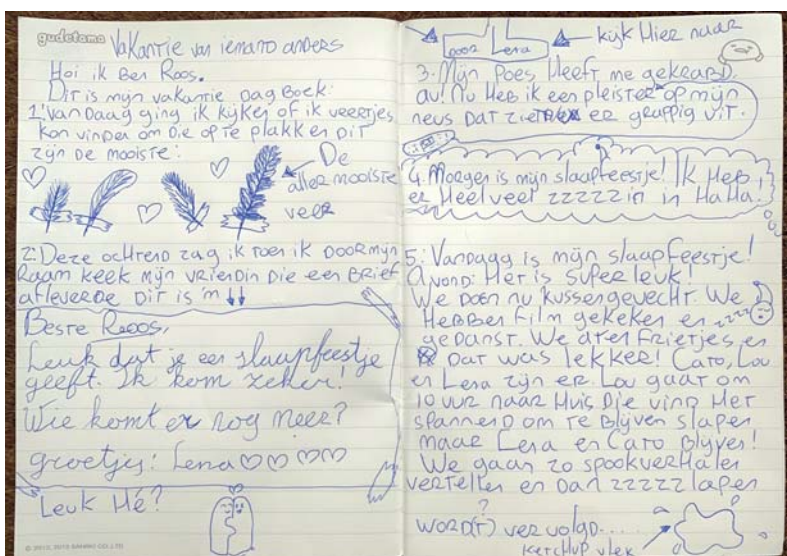 gudetama
Vakantie van iemand anders
Hoi ik Ben Roos.
Dit is mijn vakantie dagboek:
1: Vandaag ging ik kijken of ik veertjes
kon vinden om die op te plakken Dit
zijn de mooiste:
De
aller mooiste
veer
2: Deze ochtend zag ik toen ik door mijn
Raam keek mijn vriendin die een brief
afleverde Dit is 'm
Beste Roos,
Leuk dat je een slaapfeestje
geeft. Ik kom zeker!
Wie komt er nog meer?
groetjes: Lena
Leuk Hé?
© 2013, 2015 SANRIO CO., LTD.
Door Lena
kijk Hier naar
3. Mijn Poes Heeft me gekrabd.
au! Nu Heb ik een pleister op mijn
neus Dat ziet er grappig uit.
4. Morgen is mijn slaapfeestje! Ik Heb
er Heel veel zzzzzin in HaHa!
5: Vandaag is mijn slaapfeestje!
Avond: Het is super leuk!
We doen nu kussengevecht. We
Hebben film gekeken en
zzzz
gedanst. We aten Frietjes en
Dat was lekker! Caro, Lou
en Lena zijn er. Lou gaat om
10 uur naar Huis Die vind Het
spannend om te Blijven slapen
maar Lena en Caro Blijven!
We gaan zo spookverhalen
vertellen en Dan zzzzzlapen
?
word(t) vervolgd.....
ketchup vlek